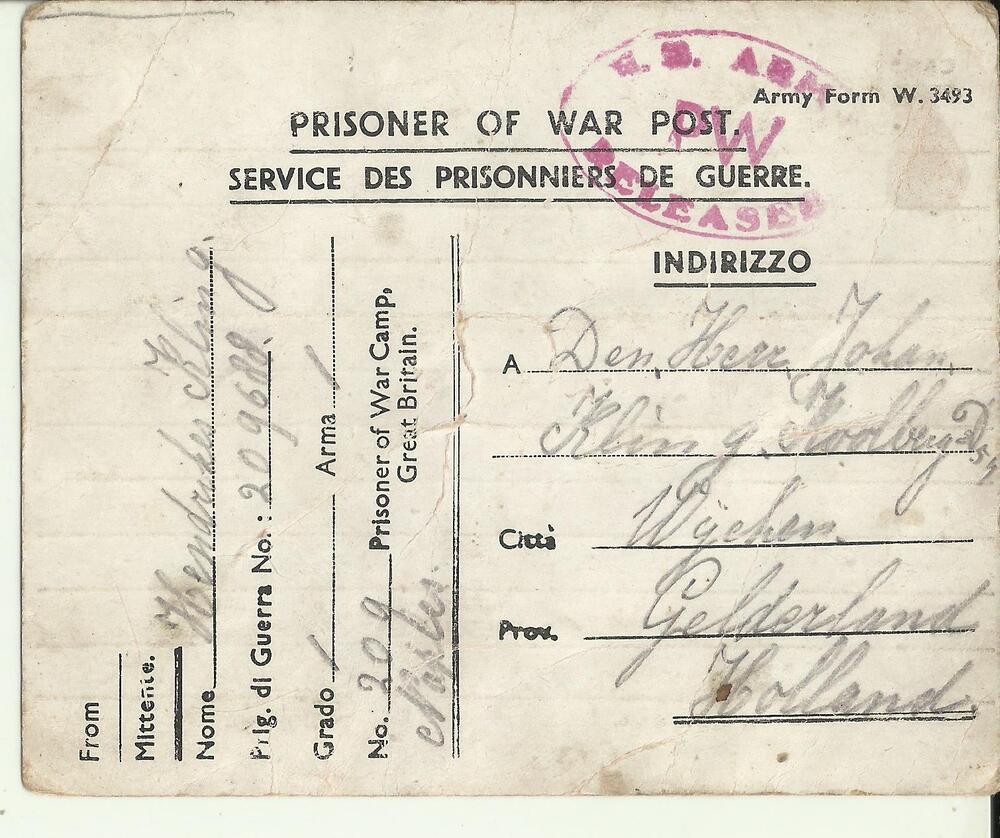 U.S. ARMY
PW
RELEASED
Army Form W. 3493
PRISONER OF WAR POST.
SERVICE DES PRISONNIERS DE GUERRE.
From
Mittente.
Nome Kling.
Prig. di Guerra No.: 209688.
Grado / Arma /
No. 209 Prisoner of War Camp,
Great Britain.
INDIRIZZO
A Den Herr Johan
Kling
Città Wychen.
Prov. Gelderland
Holland.